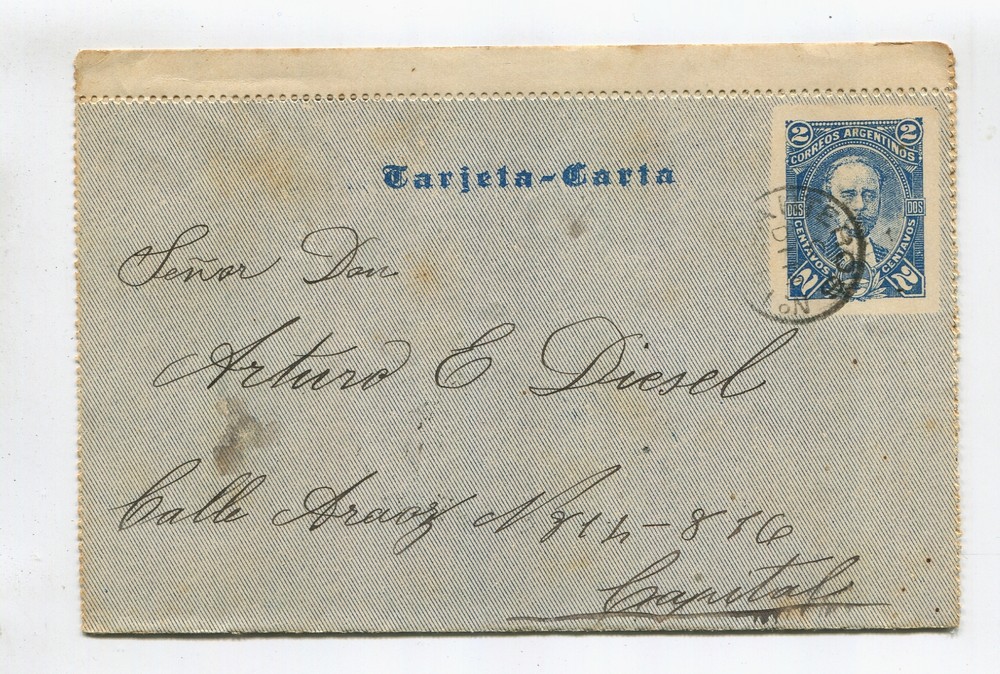 Tarjeta-Carta
2 2
CORREOS ARGENTINOS
DOS DOS
CENTAVOS CENTAVOS
2 2
Señor Don
Arturo E Diesel
Calle Araoz N 814-816
Capital